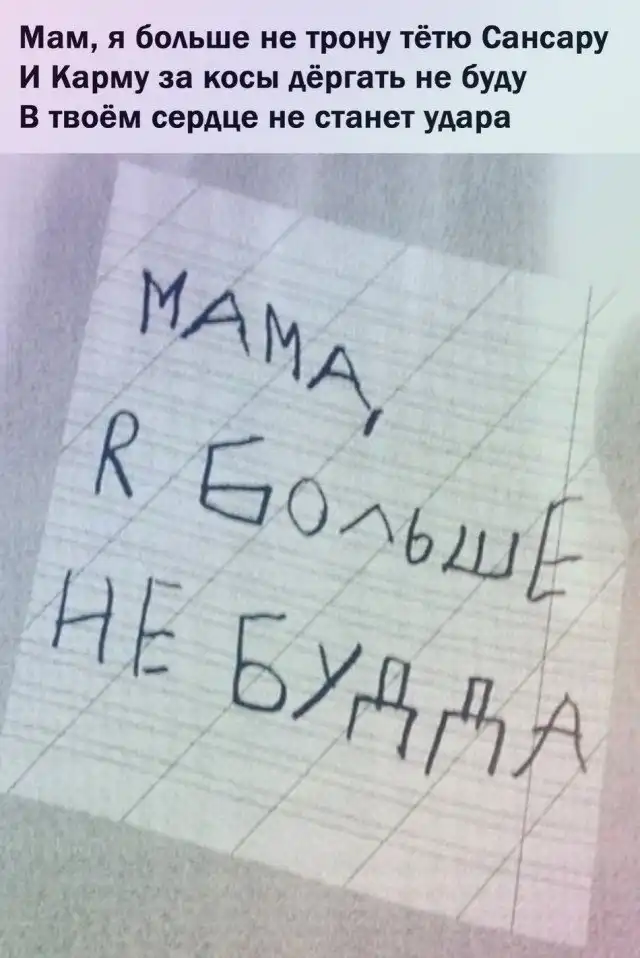 Мам, я больше не трону тётю Сансару
И Карму за косы дёргать не буду
В твоём сердце не станет удара
МАМА,
R БОЛЬШЕ
НЕ БУДДА